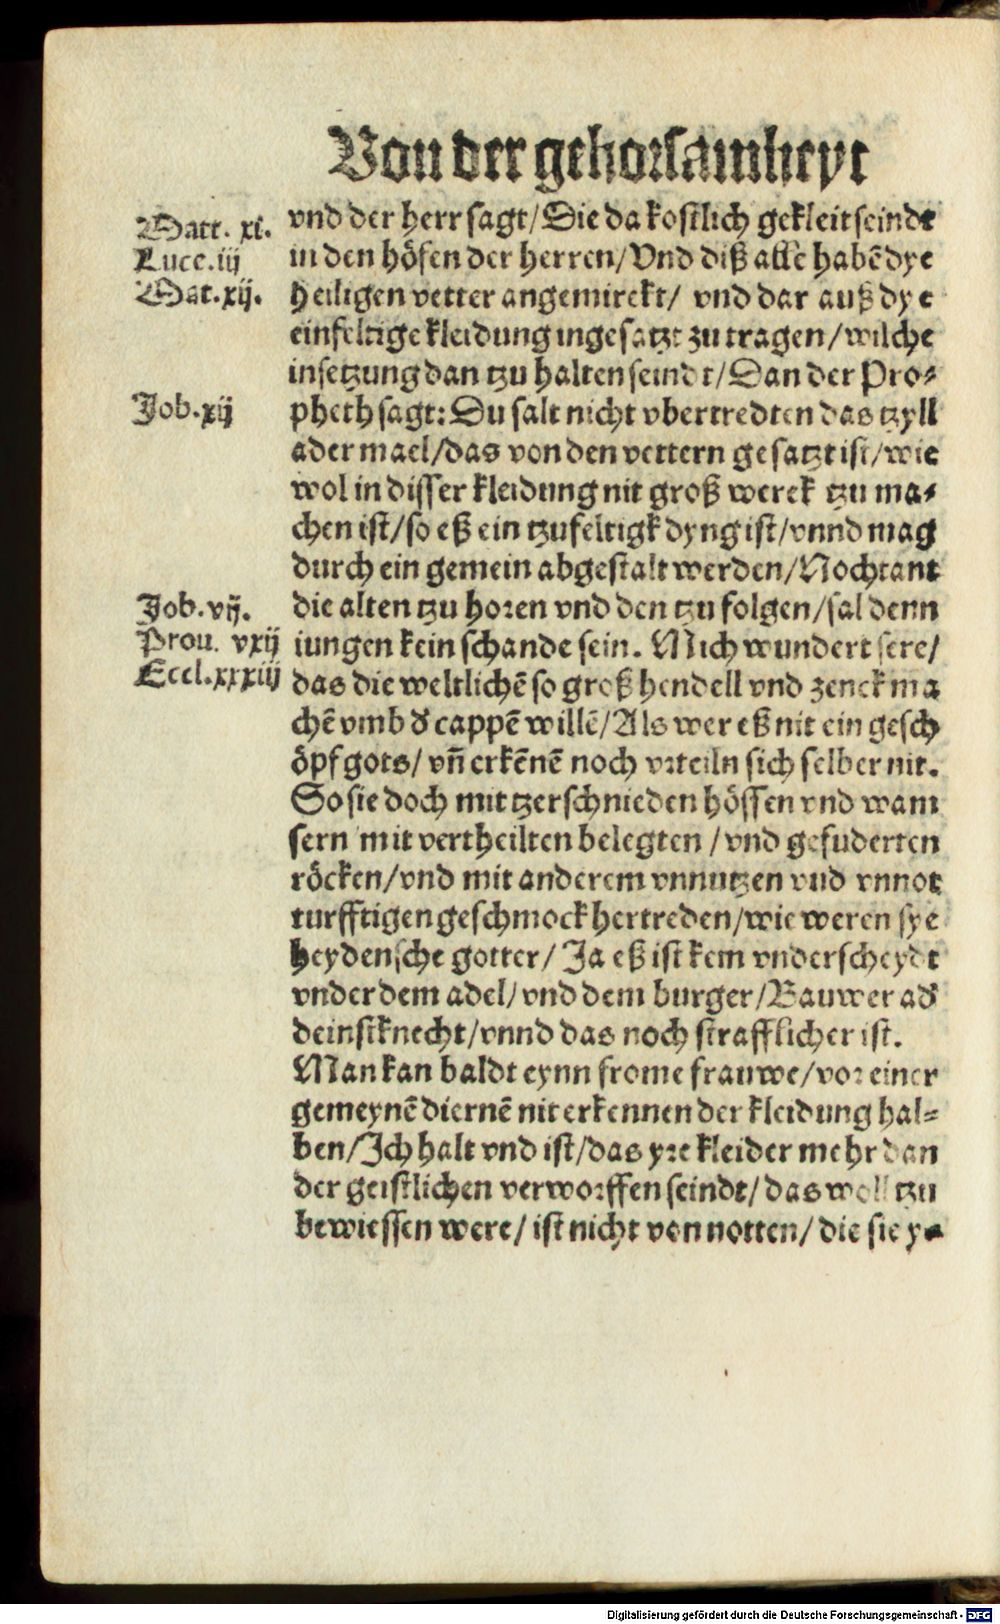 Von der gehorsamheyt
vnd der herr sagt/Die da kostlich gekleit seindt
in den höfen der herren/Vnd diß alle habē dye
heiligen vetter angemirckt/ vnd dar auß dye
einfeltige kleidung ingesatzt zu tragen/wilche
insetzung dan tzu halten seindt/Dan der Pro-
pheth sagt: Du salt nicht vbertredten das tzyll
ader mael/das von den vettern gesatzt ist/wie
wol in disser kleidung nit groß werck tzu ma-
chen ist/so eß ein tzufeltigk dyng ist/vnnd mag
durch ein gemein abgestalt werden/Nochtant
die alten tzu horen vnd den tzu folgen/sal denn
iungen kein schande sein. Mich wundert sere/
das die weltlichē so groß hendell vnd zenck ma
chē vmb d' cappē willē/Als wer eß nit ein gesch
öpf gots/ vn̄ erkēnē noch vrteiln sich selber nit.
So sie doch mit tzerschnieden hössen vnd wam
sern mit vertheilten belegten /vnd gefuderten
röcken/vnd mit anderem vnnutzen vnd vnnot
turfftigen geschmock hertreden/wie weren sye
heydensche gotter/ Ja eß ist kein vnderscheydt
vnder dem adel/vnd dem burger/Bauwer ad'
deinstknecht/vnnd das noch strafflicher ist.
Man kan baldt eynn frome frauwe/vor einer
gemeynē diernē nit erkennen der kleidung hal-
ben/Ich halt vnd ist/das yre kleider mehr dan
der geistlichen verworffen seindt/das woll tzu
bewiessen were/ ist nicht von notten/ die sie y-
Matt. xi.
Luce. iij
Mat. xij.
Job. xij
Job. vij.
Prou. vxij
Eccl. xxxiij
Digitalisierung gefördert durch die Deutsche Forschungsgemeinschaft - DFG